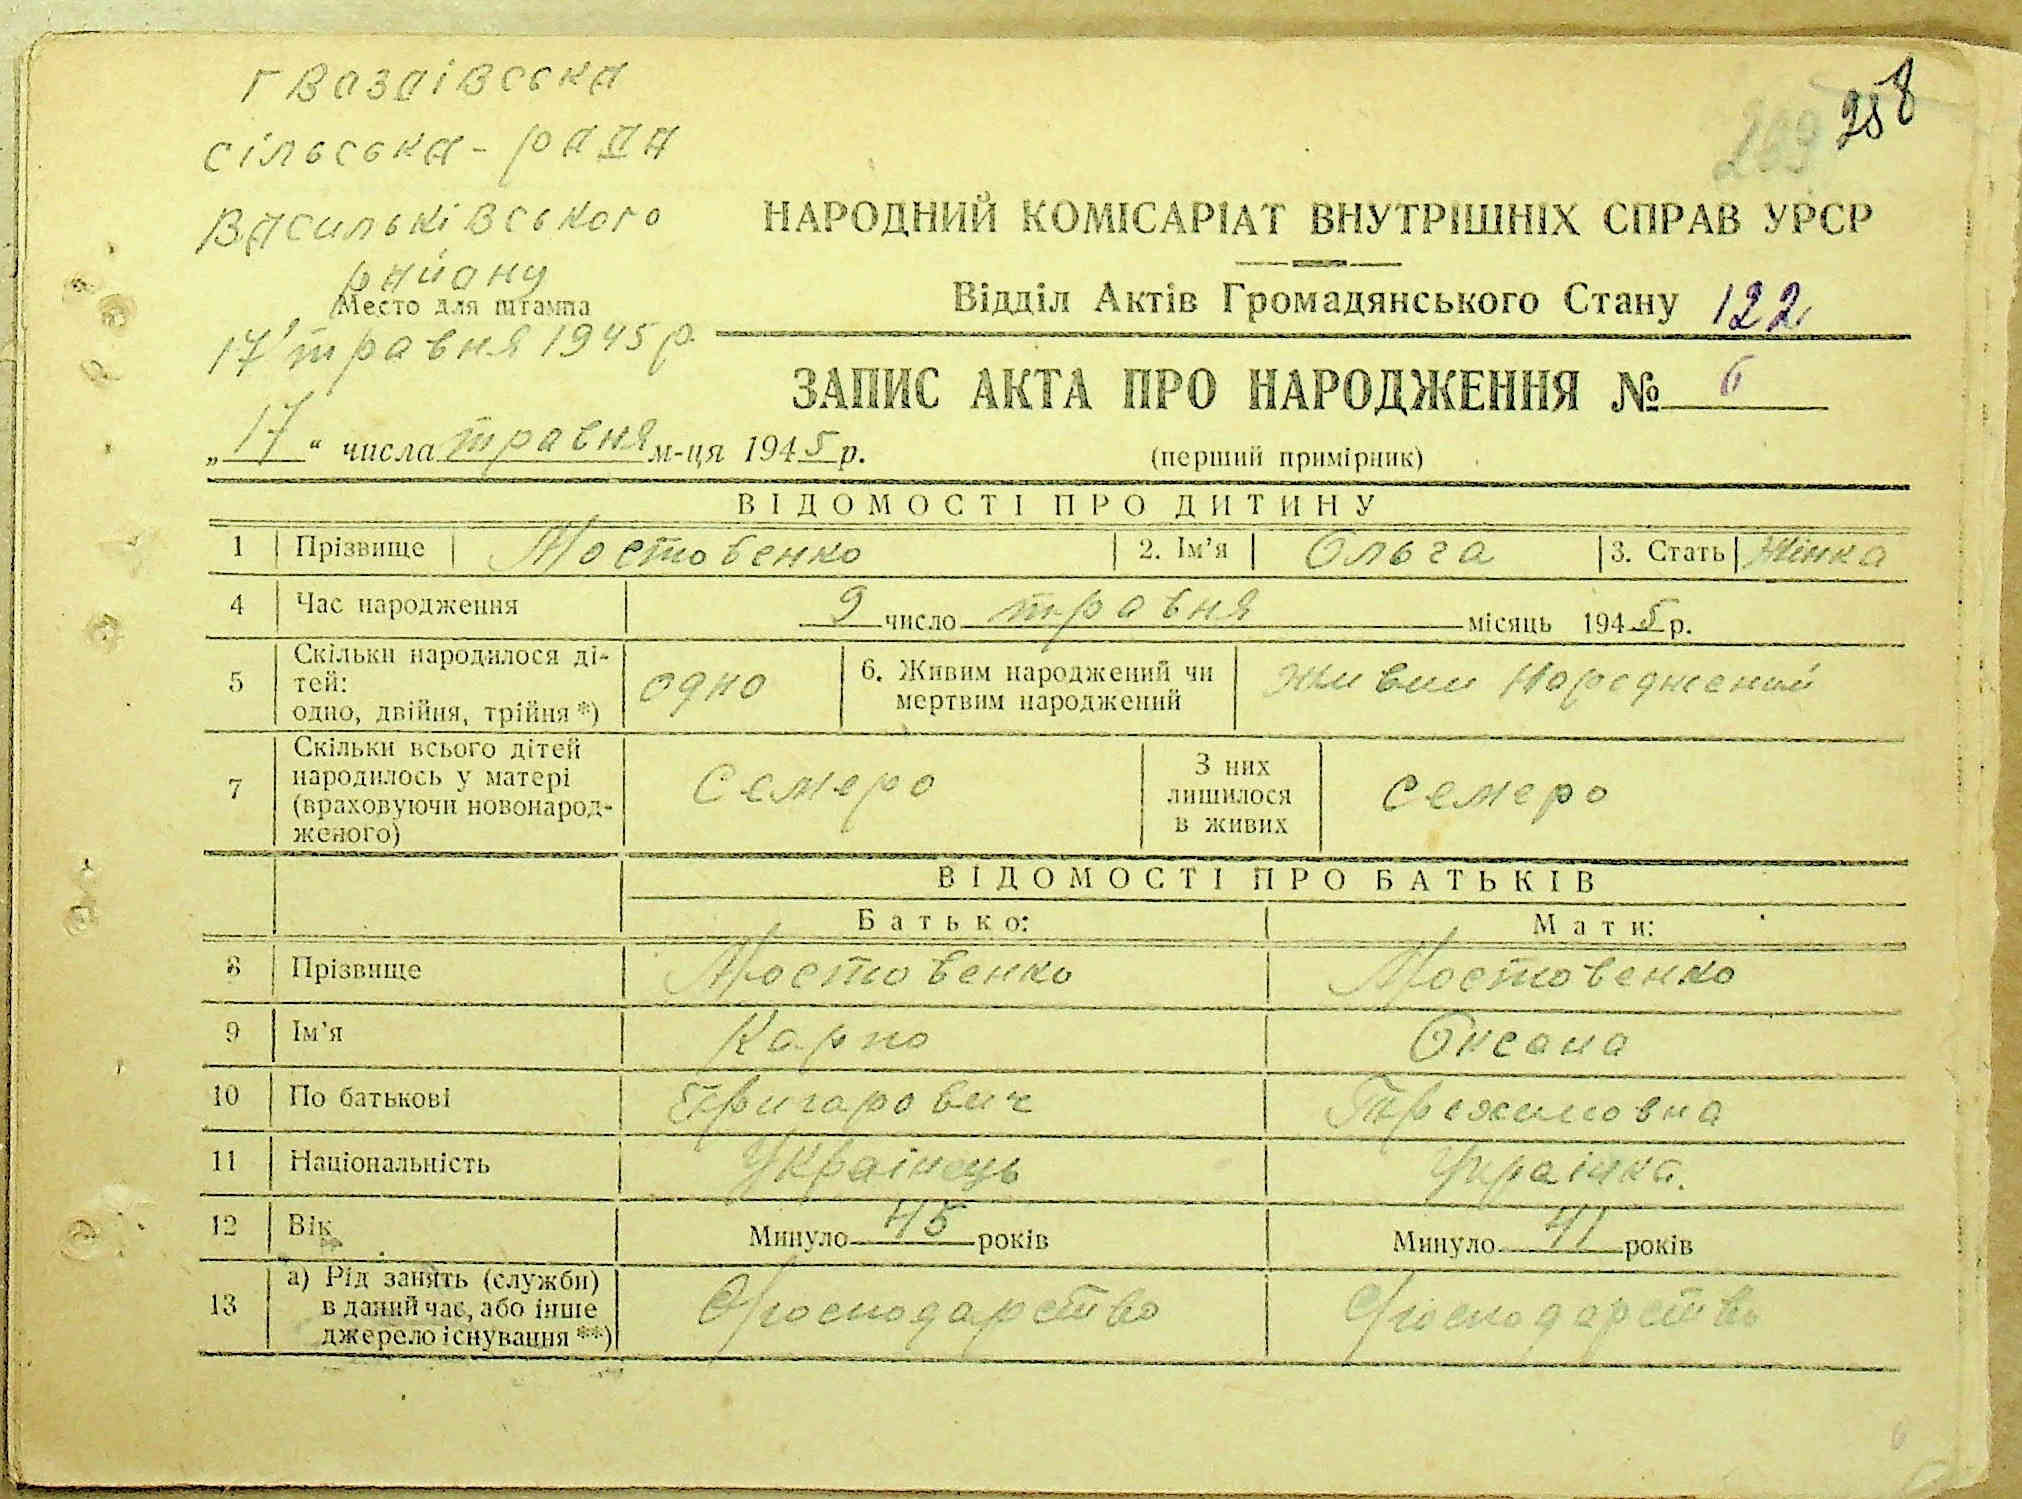 гваздівська
сільська-рада
Васильківського
району
Место для штампа
17 травня 1945 р.
258
269
НАРОДНИЙ КОМІСАРІАТ ВНУТРІШНІХ СПРАВ УРСР
Відділ Актів Громадянського Стану 122
ЗАПИС АКТА ПРО НАРОДЖЕННЯ № 6
„17“ числа травня м-ця 1945 р.
(перший примірник)
ВІДОМОСТІ ПРО ДИТИНУ
1 Прізвище Мостовенко 2. Ім’я Ольга 3. Стать Жінка
4 Час народження 9 число травня місяць 1945 р.
5 Скільки народилося ді-
тей:
одно, двійня, трійня *)
одно
6. Живим народжений чи
мертвим народжений
живим народжений
7 Скільки всього дітей
народилось у матері
(враховуючи новонарод-
женого)
семеро
З них
лишилося
в живих
семеро
ВІДОМОСТІ ПРО БАТЬКІВ
Батько: Мати:
8 Прізвище Мостовенко Мостовенко
9 Ім’я Карпо Оксана
10 По батькові Григарович
11 Національність Українець Українка.
12 Вік Минуло 45 років Минуло 41 років
13 а) Рід занять (служби)
в даний час, або інше
джерело існування **)
Господарство Господарство